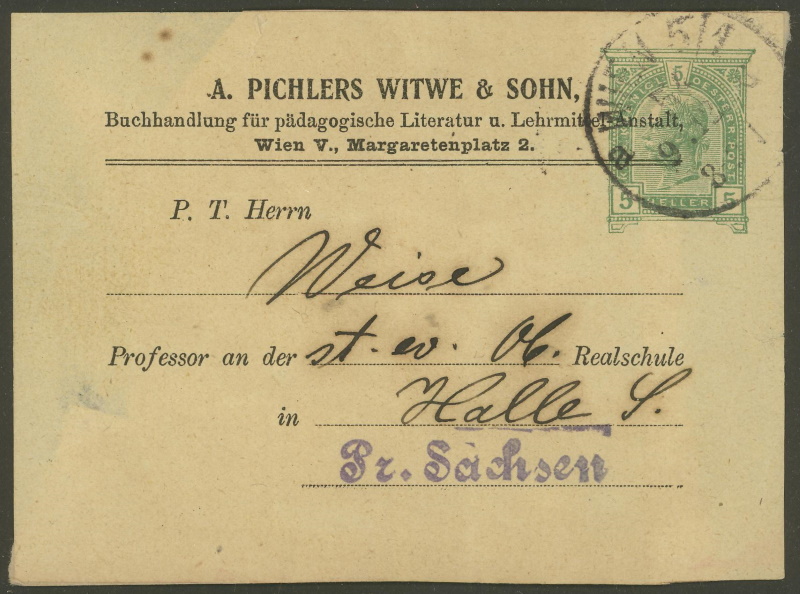 A. PICHLERS WITWE & SOHN,
Buchhandlung für pädagogische Literatur u. Lehrmittel-Anstalt,
Wien V., Margaretenplatz 2.
5
OESTERR. POST
5 HELLER 5
WIEN 5/1
P. T. Herrn
Weise
Professor an der st. ev. Ob. Realschule
in Halle S.
Pr. Sachsen